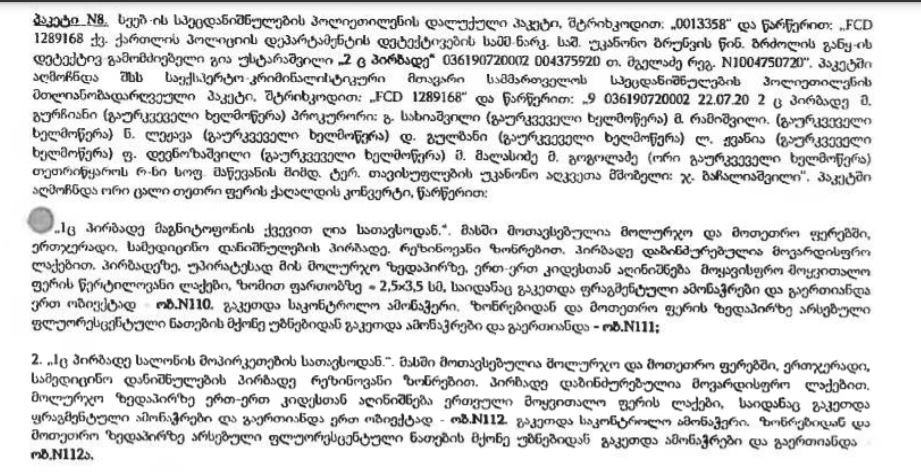 პაკეტი N8. სვებ-ის სპეცდანიშნულების პოლიეთილენის დალუქული პაკეტი, შტრიხკოდით: „0013358“ და წარწერით: „FCD
1289168 ქვ. ქართლის პოლიციის დეპარტამენტის დეტექტივების სამმ-ნარკ. საშ. უკანონო ბრუნვის წინ. ბრძოლის განყ-ის
დეტექტივ გამომძიებელი გია უსტარაშვილი „2 ც პირბადე“ 036190720002 004375920 თ. მგელაძე რეგ. N1004750720“. პაკეტში
აღმოჩნდა შსს საექსპერტო-კრიმინალისტიკური მთავარი სამმართველოს სპეცდანიშნულების პოლიეთილენის
მთლიანობადარღვეული პაკეტი, შტრიხკოდით: „FCD 1289168“ და წარწერით: „9 036190720002 22.07.20 2 ც პირბადე მ.
გურჩიანი (გაურკვეველი ხელმოწერა) პროკურორი: გ. სახიაშვილი (გაურკვეველი ხელმოწერა) მ. რამიშვილი. (გაურკვეველი
ხელმოწერა) ნ. ლეჟავა (გაურკვეველი ხელმოწერა) დ. გულბანი (გაურკვეველი ხელმოწერა) ლ. ჟვანია (გაურკვეველი
ხელმოწერა) ფ. დევნოზაშვილი (გაურკვეველი ხელმოწერა) მ. მალასიძე მ. გოგოლაძე (ორი გაურკვეველი ხელმოწერა)
თეთრიწყაროს რ-ნი სოფ. მაწევანის მიმდ. ტერ. თავისუფლების უკანონო აღკვეთა მშობელი: ჯ. ბაჩალიაშვილი“. პაკეტში
აღმოჩნდა ორი ცალი თეთრი ფერის ქაღალდის კონვერტი, წარწერით:
„1ც პირბადე მაგნიტოფონის ქვევით ღია სათავსოდან.“. მასში მოთავსებულია მოლურჯო და მოთეთრო ფერებში,
ერთჯერადი, სამედიცინო დანიშნულების პირბადე, რეზინოვანი ზონრებით. პირბადე დაბინძურებულია მოვარდისფრო
ლაქებით. პირბადეზე, უპირატესად მის მოლურჯო ზედაპირზე, ერთ-ერთ კიდესთან აღინიშნება მოყავისფრო მოყვითალო
ფერის წერტილოვანი ლაქები, ზომით ფართობზე ≈ 2,5x3,5 სმ, საიდანაც გაკეთდა ფრაგმენტული ამონაჭრები და გაერთიანდა
ერთ ობიექტად - ობ.N110. გაკეთდა საკონტროლო ამონაჭერი. ზონრებიდან და მოთეთრო ფერის ზედაპირზე არსებული
ფლუორესცენტული ნათების მქონე უბნებიდან გაკეთდა ამონაჭრები და გაერთიანდა - ობ.N111;
2. „1ც პირბადე სალონის მოპირკეთების სათავსოდან.“. მასში მოთავსებულია მოლურჯო და მოთეთრო ფერებში, ერთჯერადი,
სამედიცინო დანიშნულების პირბადე რეზინოვანი ზონრებით. პირბადე დაბინძურებულია მოვარდისფრო ლაქებით.
მოლურჯო ზედაპირზე ერთ-ერთ კიდესთან აღინიშნება ერთეული მოყვითალო ფერის ლაქები, საიდანაც გაკეთდა
ფრაგმენტული ამონაჭრები და გაერთიანდა ერთ ობიექტად - ობ.N112. გაკეთდა საკონტროლო ამონაჭერი. ზონრებიდან და
მოთეთრო ზედაპირზე არსებული ფლუორესცენტული ნათების მქონე უბნებიდან გაკეთდა ამონაჭრები და გაერთიანდა -
ობ.N112ა.